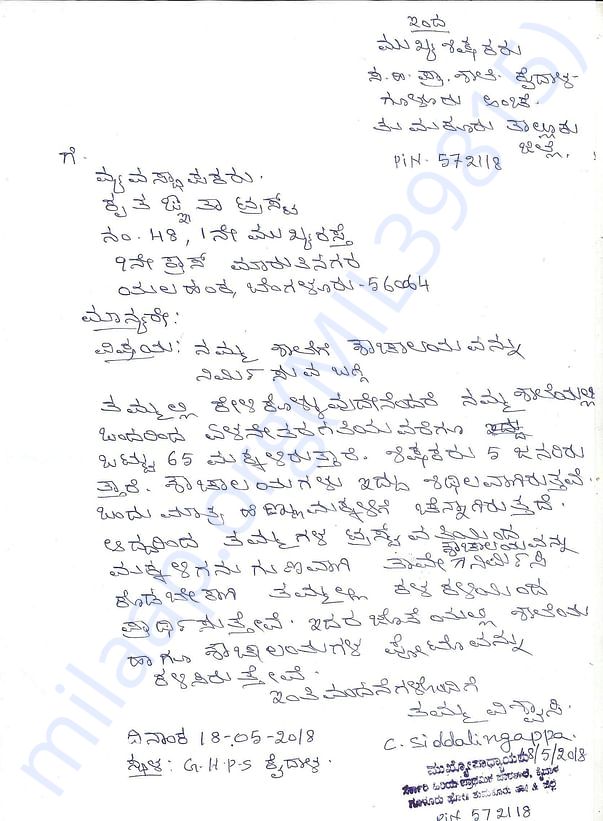 ಇಂದ
ಮುಖ್ಯ ಶಿಕ್ಷಕರು
ಸ.ಹಿ.ಪ್ರಾ.ಶಾಲೆ. ಕೈದಾಳ-
ಗೂಳೂರು ಅಂಚೆ.
ತುಮಕೂರು ತಾಲ್ಲೂಕು
ಜಿಲ್ಲೆ.
PiN. 572118
ಗೆ.
ವ್ಯವಸ್ಥಾಪಕರು.
ಕೃತಜ್ಞತಾ ಟ್ರಸ್ಟ್
ನಂ. 48, 1ನೇ ಮುಖ್ಯರಸ್ತೆ
9ನೇ ಕ್ರಾಸ್ ಮಾರುತಿನಗರ
ಯಲಹಂಕ, ಬೆಂಗಳೂರು-560064
ಮಾನ್ಯರೇ:
ವಿಷಯ: ನಮ್ಮ ಶಾಲೆಗೆ ಶೌಚಾಲಯವನ್ನು
ನಿರ್ಮಿಸುವ ಬಗ್ಗೆ
ತಮ್ಮಲ್ಲಿ ಕೇಳಿಕೊಳ್ಳುವುದೇನೆಂದರೆ ನಮ್ಮ ಶಾಲೆಯಲ್ಲಿ
ಒಂದರಿಂದ ಏಳನೇ ತರಗತಿಯವರೆಗೂ
ಒಟ್ಟು 65 ಮಕ್ಕಳಿರುತ್ತಾರೆ. ಶಿಕ್ಷಕರು 5 ಜನರಿರು
ತ್ತಾರೆ. ಶೌಚಾಲಯಗಳು ಇದ್ದು ಶಿಥಿಲವಾಗಿರುತ್ತವೆ.
ಒಂದು ಮಾತ್ರ ಹೆಣ್ಣು ಮಕ್ಕಳಿಗೆ ಚೆನ್ನಾಗಿರುತ್ತದೆ.
ಆದ್ದರಿಂದ ತಮ್ಮಗಳ ಟ್ರಸ್ಟ್ ವತಿಯಿಂದ
ಮಕ್ಕಳಿಗನುಗುಣವಾಗಿ ತಾವೇ ಶೌಚಾಲಯವನ್ನು ನಿರ್ಮಿಸಿ
ಕೊಡಬೇಕಾಗಿ ತಮ್ಮಲ್ಲಿ ಕಳಕಳಿಯಿಂದ
ಪ್ರಾರ್ಥಿಸುತ್ತೇವೆ. ಇದರ ಜೊತೆಯಲ್ಲಿ ಶಾಲೆಯ
ಹಾಗೂ ಶೌಚಾಲಯಗಳ ಫೋಟೋವನ್ನು
ಕಳಿಸಿರುತ್ತೇವೆ.
ಇಂತಿ ವಂದನೆಗಳೊಂದಿಗೆ
ತಮ್ಮ ವಿಶ್ವಾಸಿ.
ದಿನಾಂಕ 18-05-2018
C. Siddalingappa.
18/5/2018
ಸ್ಥಳ: G.H.P.S ಕೈದಾಳ.
ಮುಖ್ಯೋಪಾಧ್ಯಾಯರು
ಸರ್ಕಾರಿ ಹಿರಿಯ ಪ್ರಾಥಮಿಕ ಪಾಠಶಾಲೆ, ಕೈದಾಳ
ಗೂಳೂರು ಹೋಬಳಿ ತುಮಕೂರು ತಾ|| & ಜಿಲ್ಲೆ
PiN 572118
milaap.org(MIL39815)